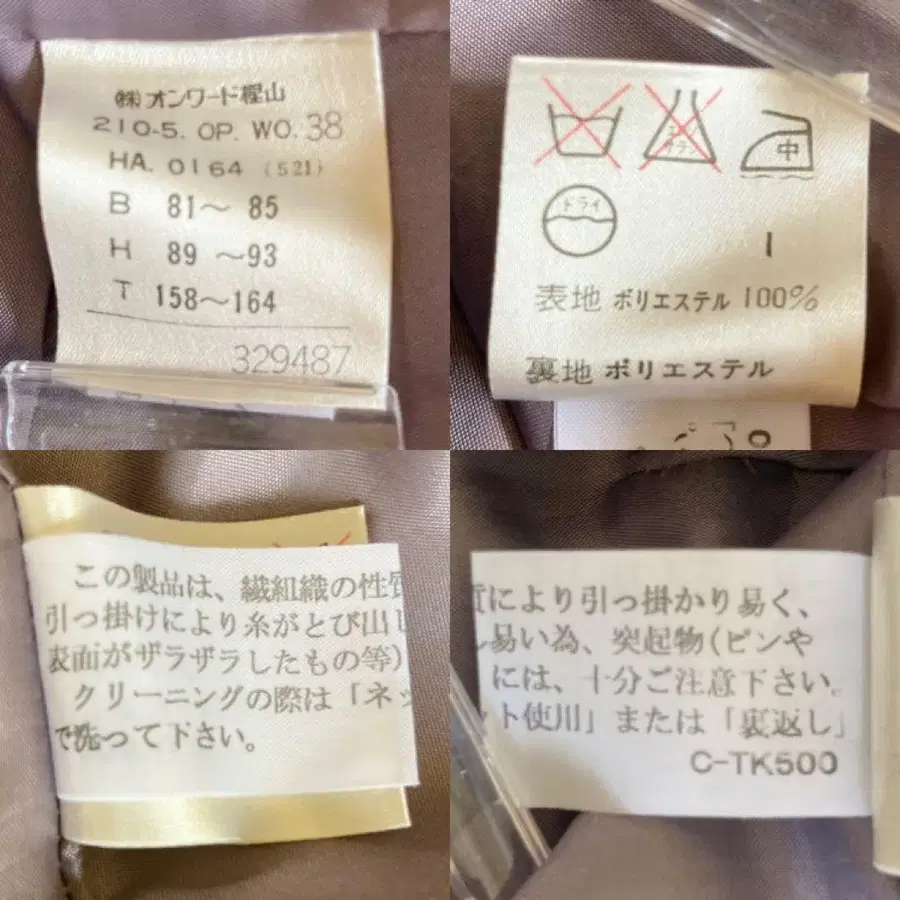 ㈱オンワード樫山
210-5. OP. WO. 38
HA. 0164 (521)
B 81〜 85
H 89 〜93
T 158〜164
329487
エンソ
サラシ
中
ドライ
1
表地 ポリエステル 100%
裏地 ポリエステル
この製品は、繊組織の性質
引っ掛けにより糸がとび出し
表面がザラザラしたもの等)
クリーニングの際は「ネッ
で洗って下さい。
質により引っ掛かり易く、
し易い為、突起物(ピンや
には、十分ご注意下さい。
ット使用」または「裏返し」
C-TK500